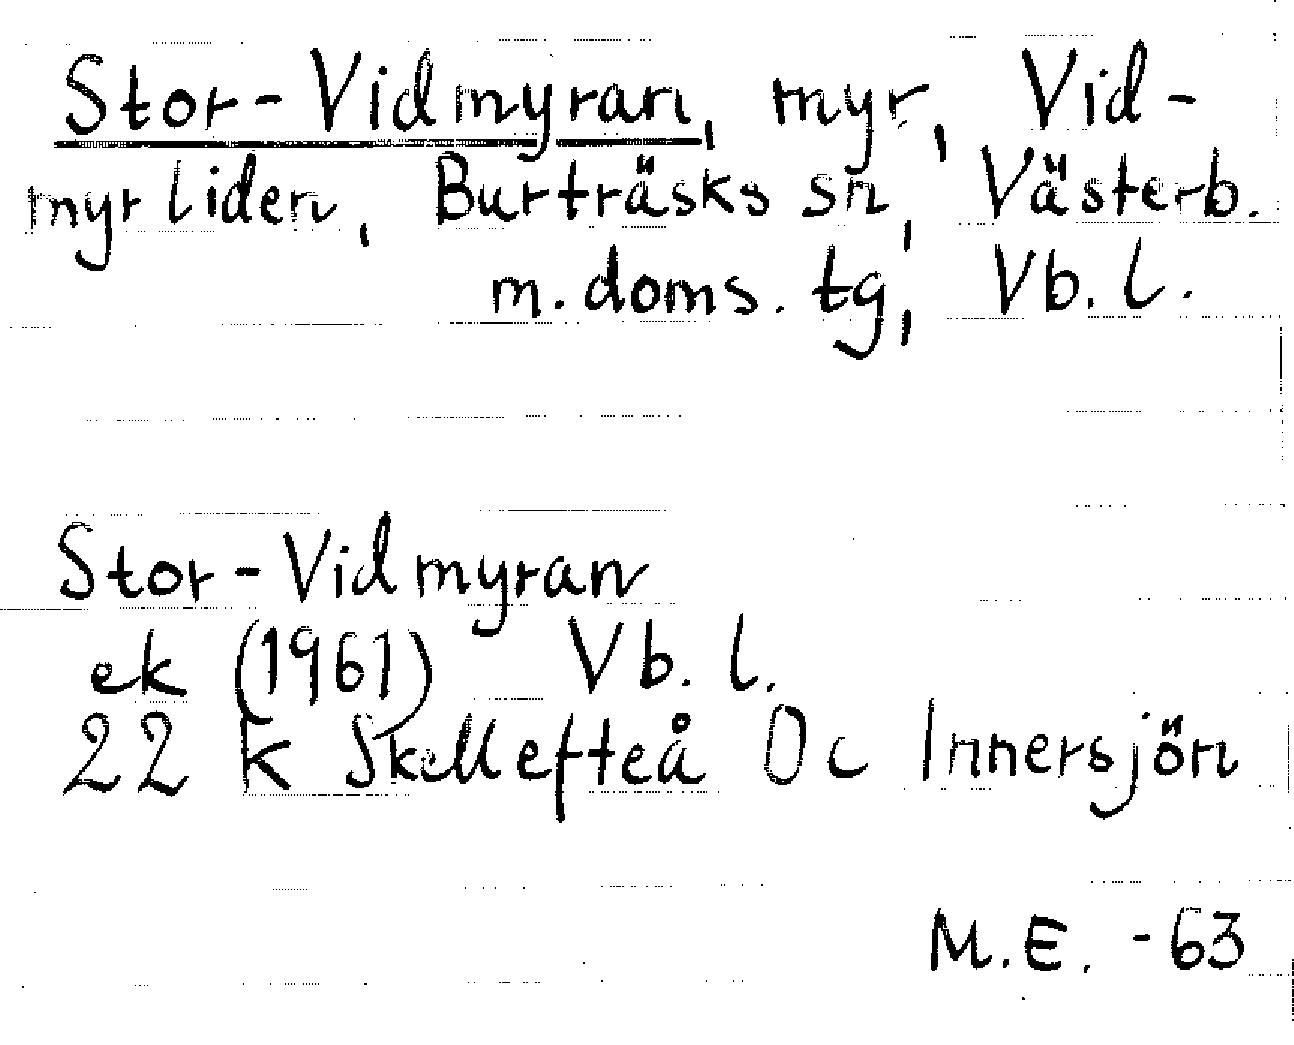 Stor-Vidmyran, myr, Vid-
myrliden, Burträsks sn, Västerb.
m. doms. tg, Vb. l.
Stor-Vidmyran
ek (1961) Vb. l.
22 K Skellefteå Oc Innersjön
M.E. -63